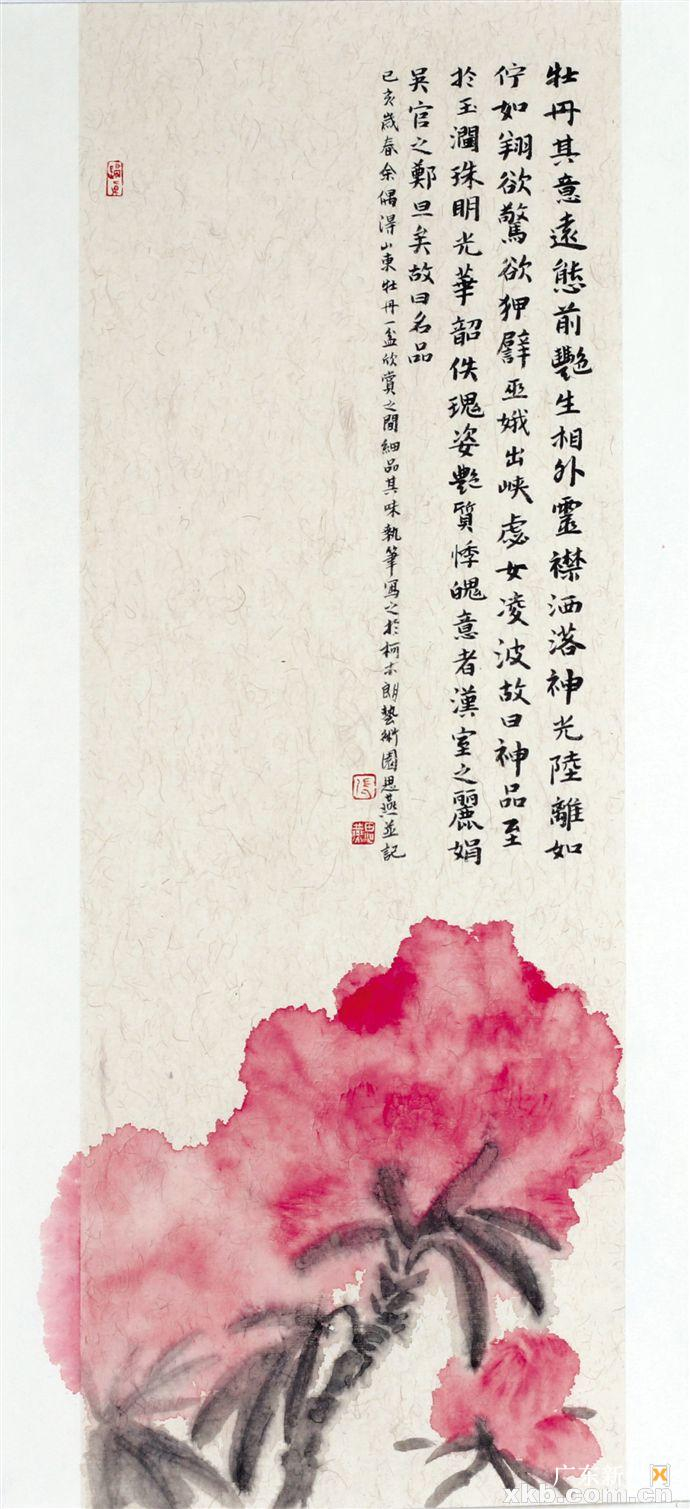 牡丹其意遠態前艷生相外靈襟洒落神光陸離如
佇如翔欲驚欲狎譬巫娥出峽虙女凌波故曰神品至
於玉潤珠明光華韶佚瑰姿艷質悸魄意者漢室之麗娟
吴官之鄭旦矣故曰名品
己亥歲春余偶得山東牡丹一盆欣賞之間細品其味執筆寫之於柯木朗藝術園思燕並記
广东新
xkb.com.cn